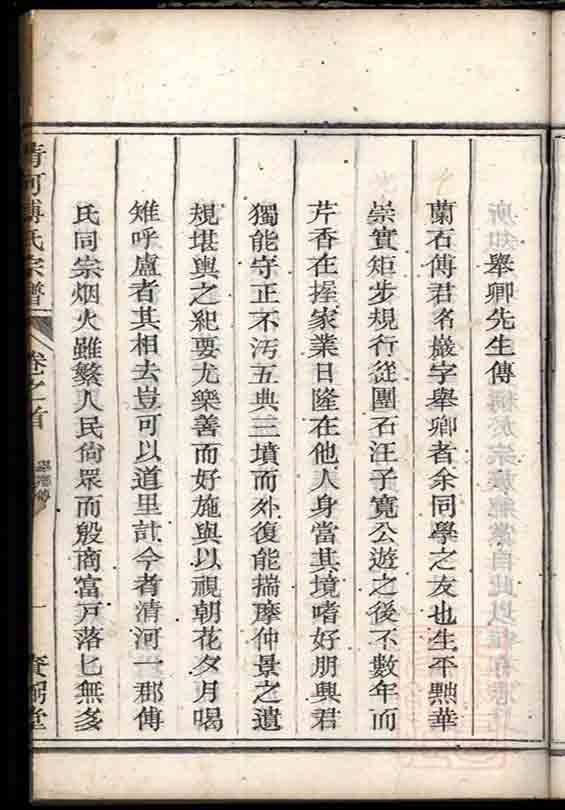 舉卿先生傳
蘭石傅君名巖字舉卿者余同學之友也生平黜華
崇實矩步規行從團石汪子寬公遊之後不數年而
芹香在握家業日隆在他人身當其境嗜好朋興君
獨能守正不汚五典三墳而外復能揣摩仲景之遺
規堪輿之紀要尤樂善而好施與以視朝花夕月喝
雉呼盧者其相去豈可以道里計今者清河一郡傅
氏同宗烟火雖繁人民尙眾而殷商富戸落匕無多
清河傅氏宗譜
卷之首
舉卿傳
一